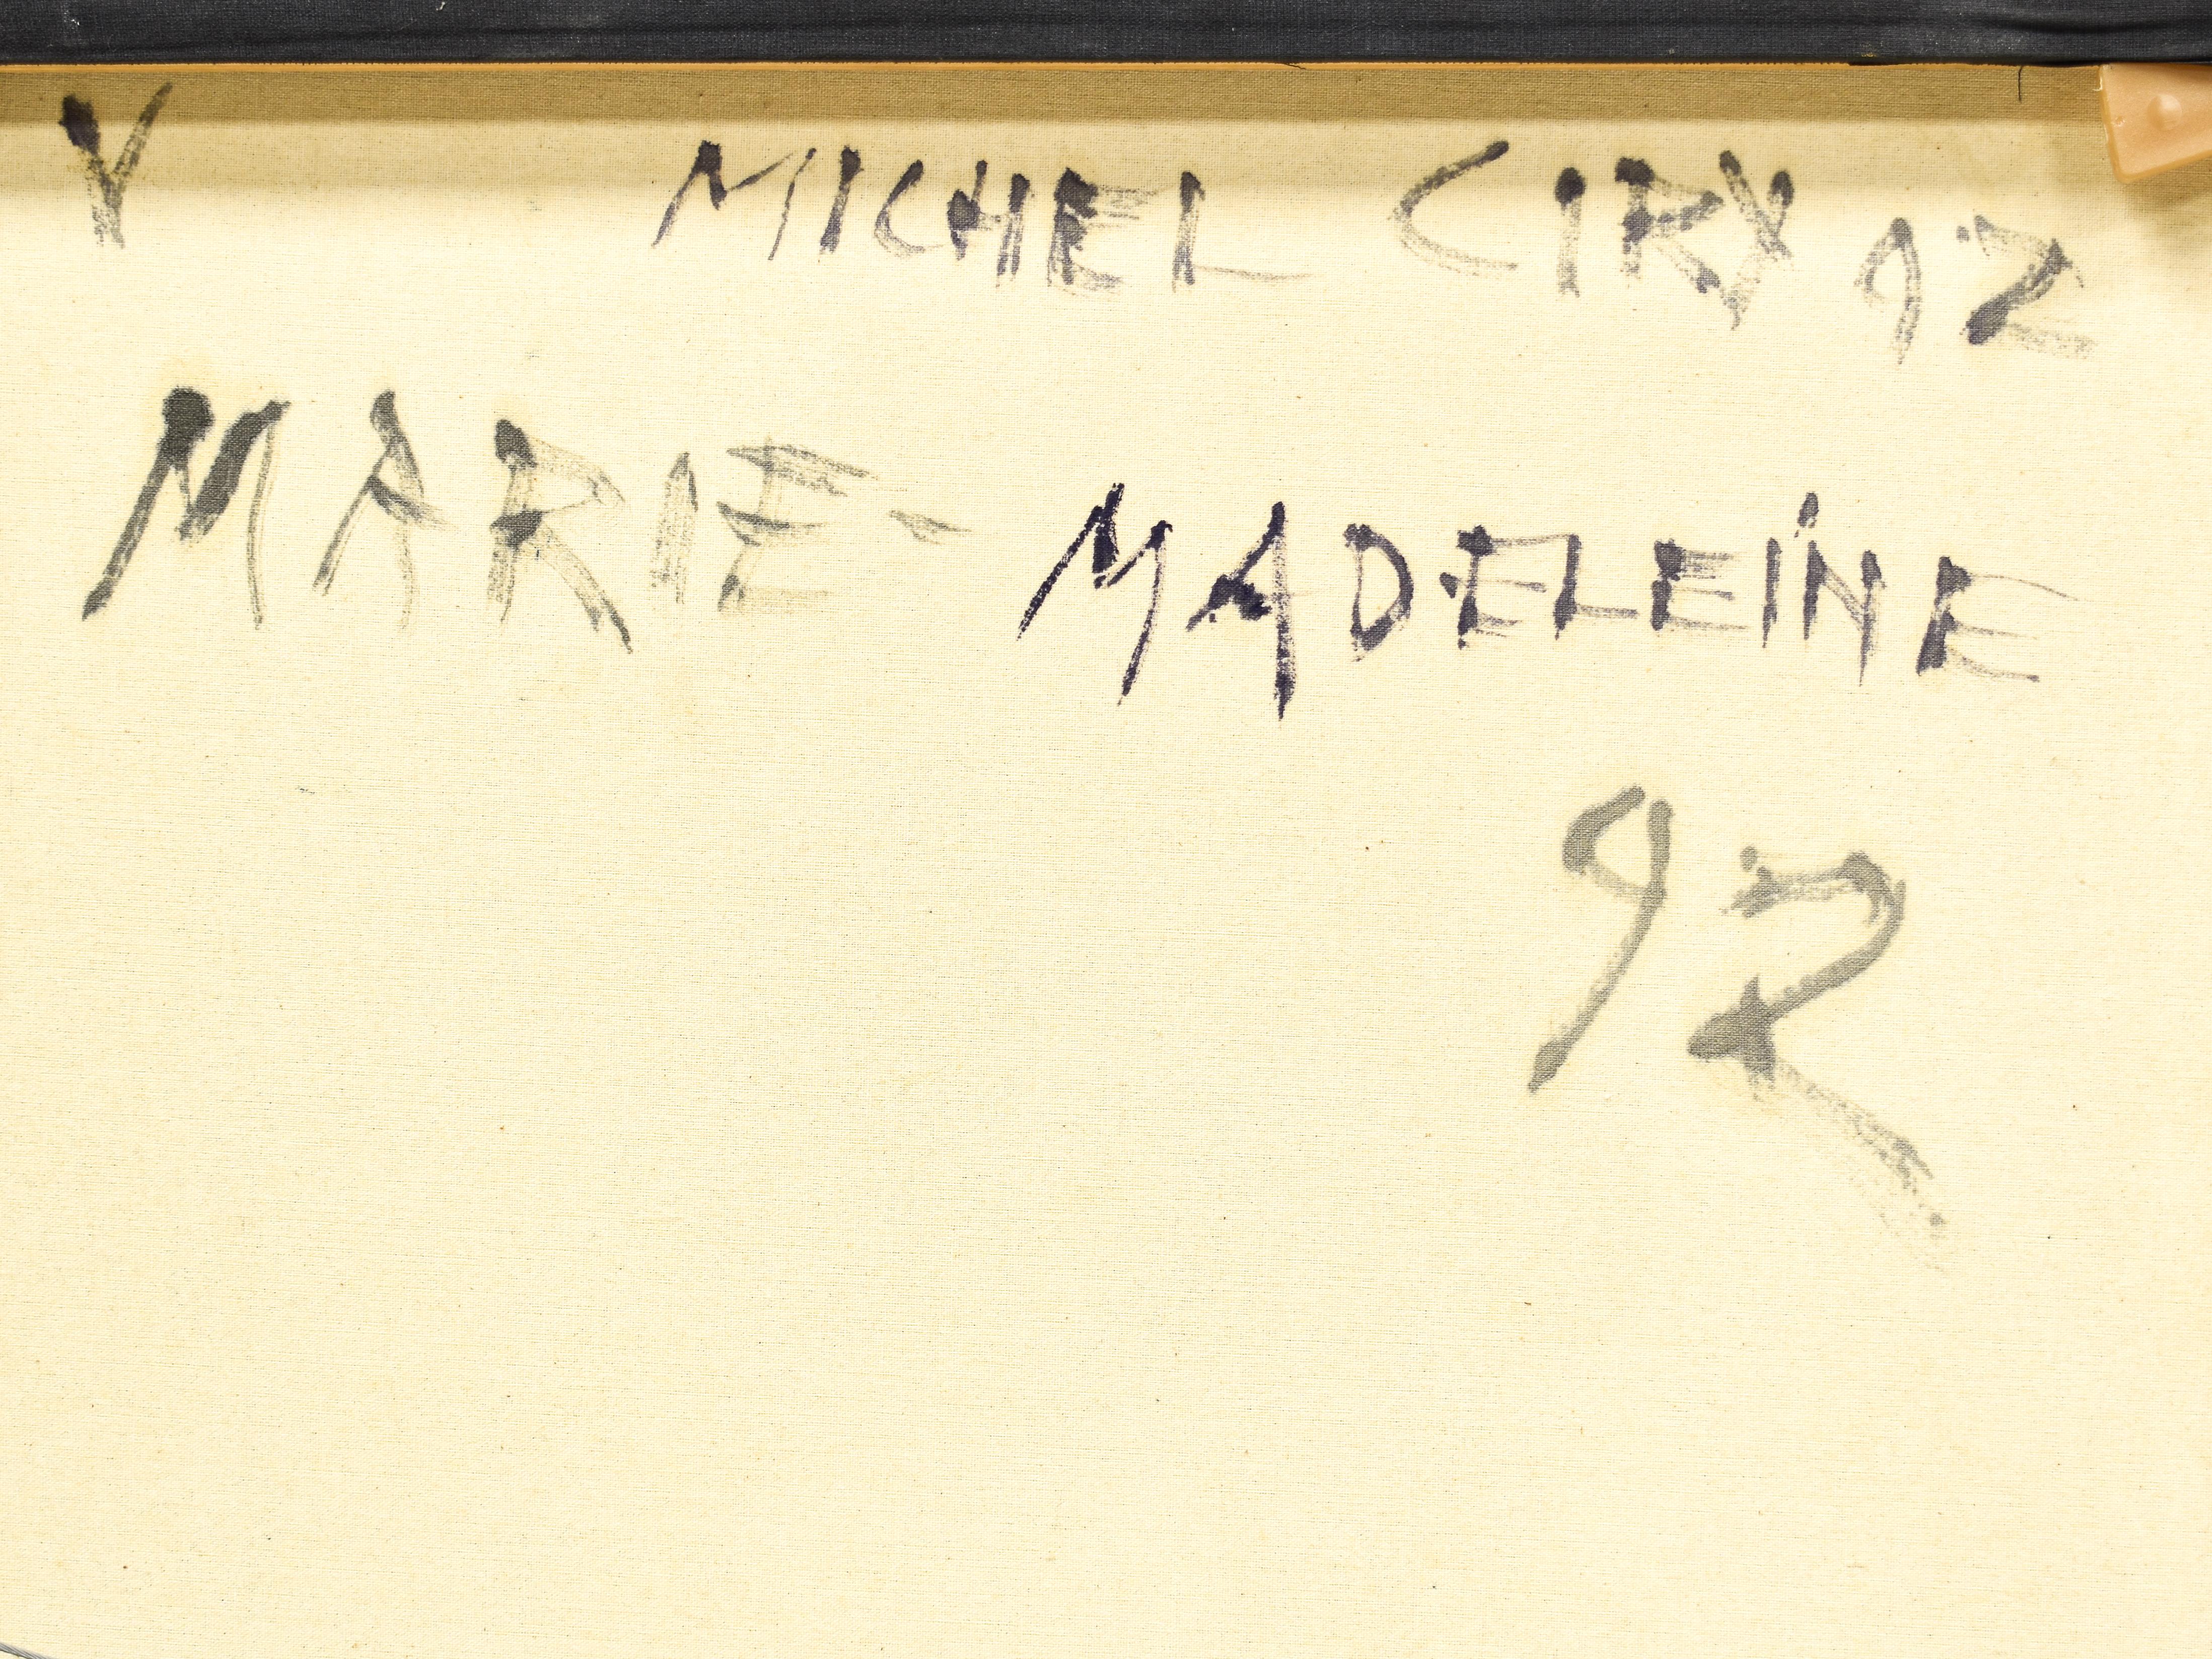 Y MICHEL CIRY 92
MARIE- MADELEINE
92